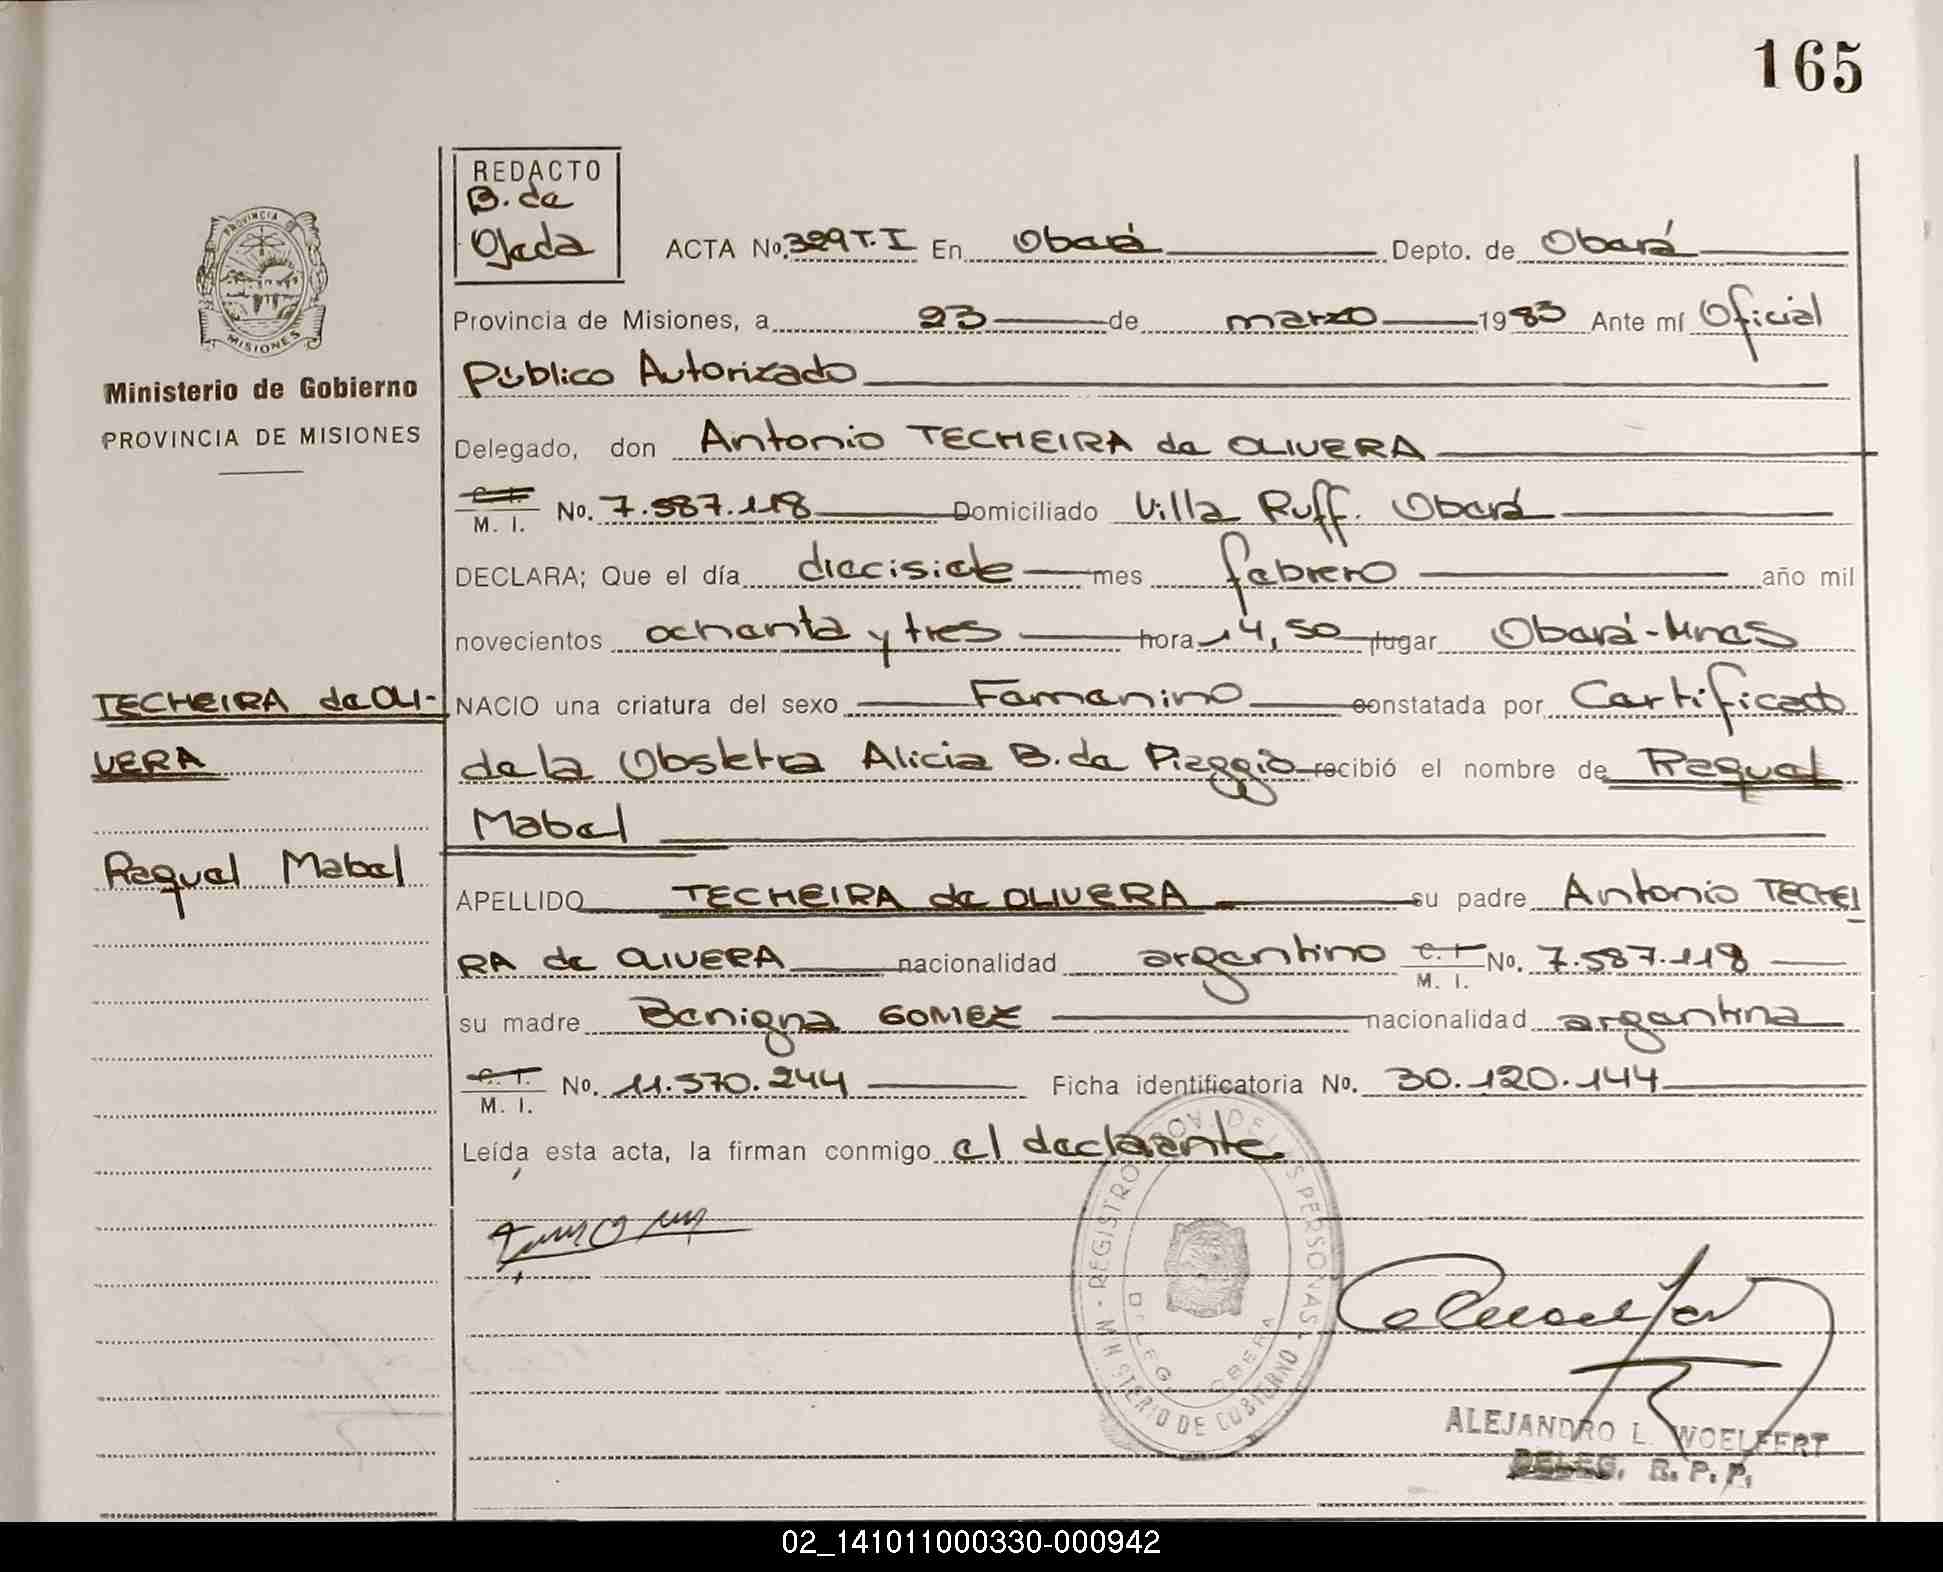 165
REDACTO
B. de
Ojeda
ACTA No. 329 T. I En Oberá Depto. de Oberá
PROVINCIA DE
MISIONES
Provincia de Misiones, a 23 de marzo 1983 Ante mí Oficial
Ministerio de Gobierno
Público Autorizado
PROVINCIA DE MISIONES
Delegado, don Antonio TECHEIRA de OLIVERA
C. I.
M. I. No. 7.587.118 Domiciliado Villa Ruff. Oberá
DECLARA; Que el día diecisiete mes febrero año mil
novecientos ochenta y tres hora 14,50 lugar Oberá-Mnes
TECHEIRA de OLI-
NACIO una criatura del sexo Femenino constatada por Certificado
VERA
de la Obstetra Alicia B. de Piaggio recibió el nombre de Raquel
Mabel
Raquel Mabel
APELLIDO TECHEIRA de OLIVERA su padre Antonio TECHEI
RA de OLIVERA nacionalidad argentino C. I. M. I. No. 7.587.118
su madre Benigna GOMEZ nacionalidad argentina
C. I.
M. I. No. 11.570.244 Ficha identificatoria No. 30.120.144
Leída esta acta, la firman conmigo el declarante
REGISTRO PROV. DE LAS PERSONAS
MINISTERIO DE GOBIERNO
DELEG. OBERA
ALEJANDRO L. WOELFERT
DELEG. R. P. P.
02_141011000330-000942